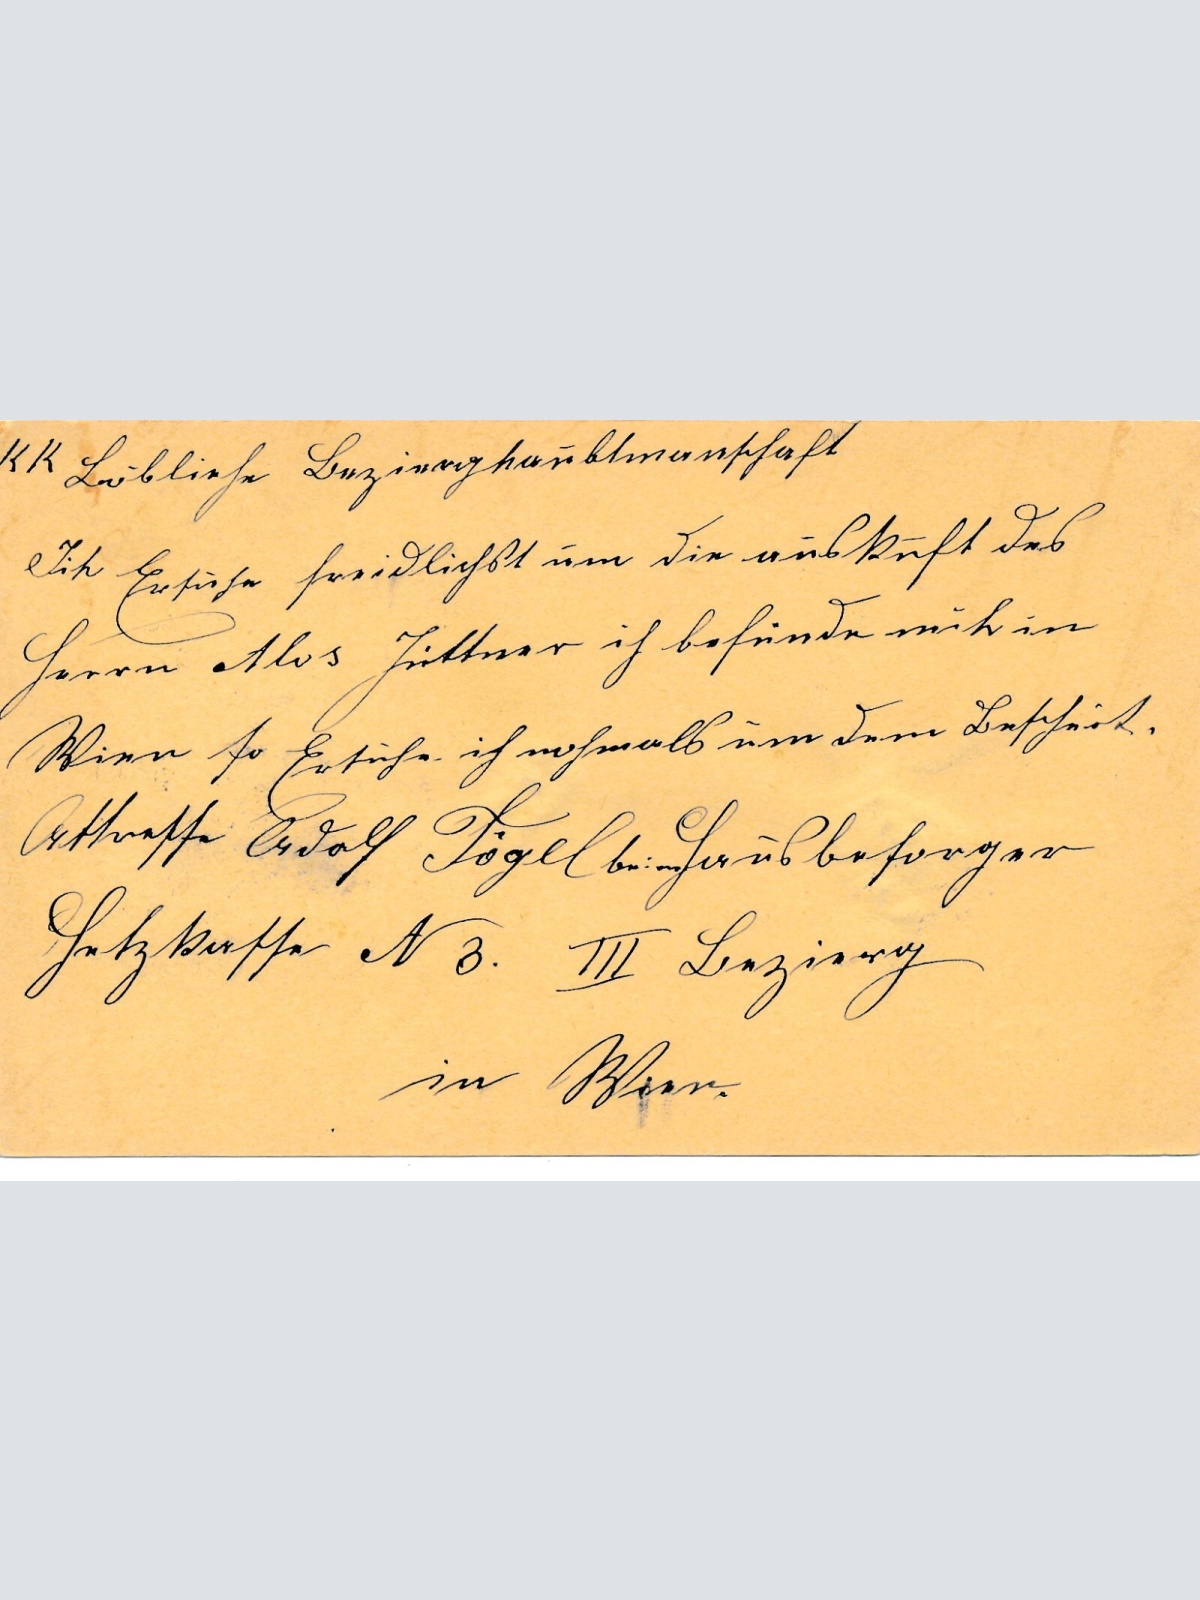 KK Löbliche Bezierghaubtmanschaft
Ich Ersuche freidlichst um die auskuft des
Herrn Alos Jüttner ich befünde mich in
Wien so Ersuche ich nochmals um dem Bescheit.
Attresse Adolf Fögel beim Hausbesorger
Hetzkasse N 3. III Bezierg
in Wien.